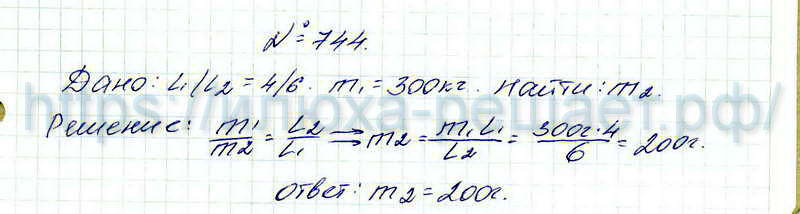 № 744.
Дано: L₁/L₂ = 4/6. m₁ = 300кг. Найти: m₂.
https://илюха-решает.рф/
Решение: m₁/m₂ = L₂/L₁ → m₂ = m₁L₁/L₂ = 300г·4/6 = 200г.
Ответ: m₂ = 200г.